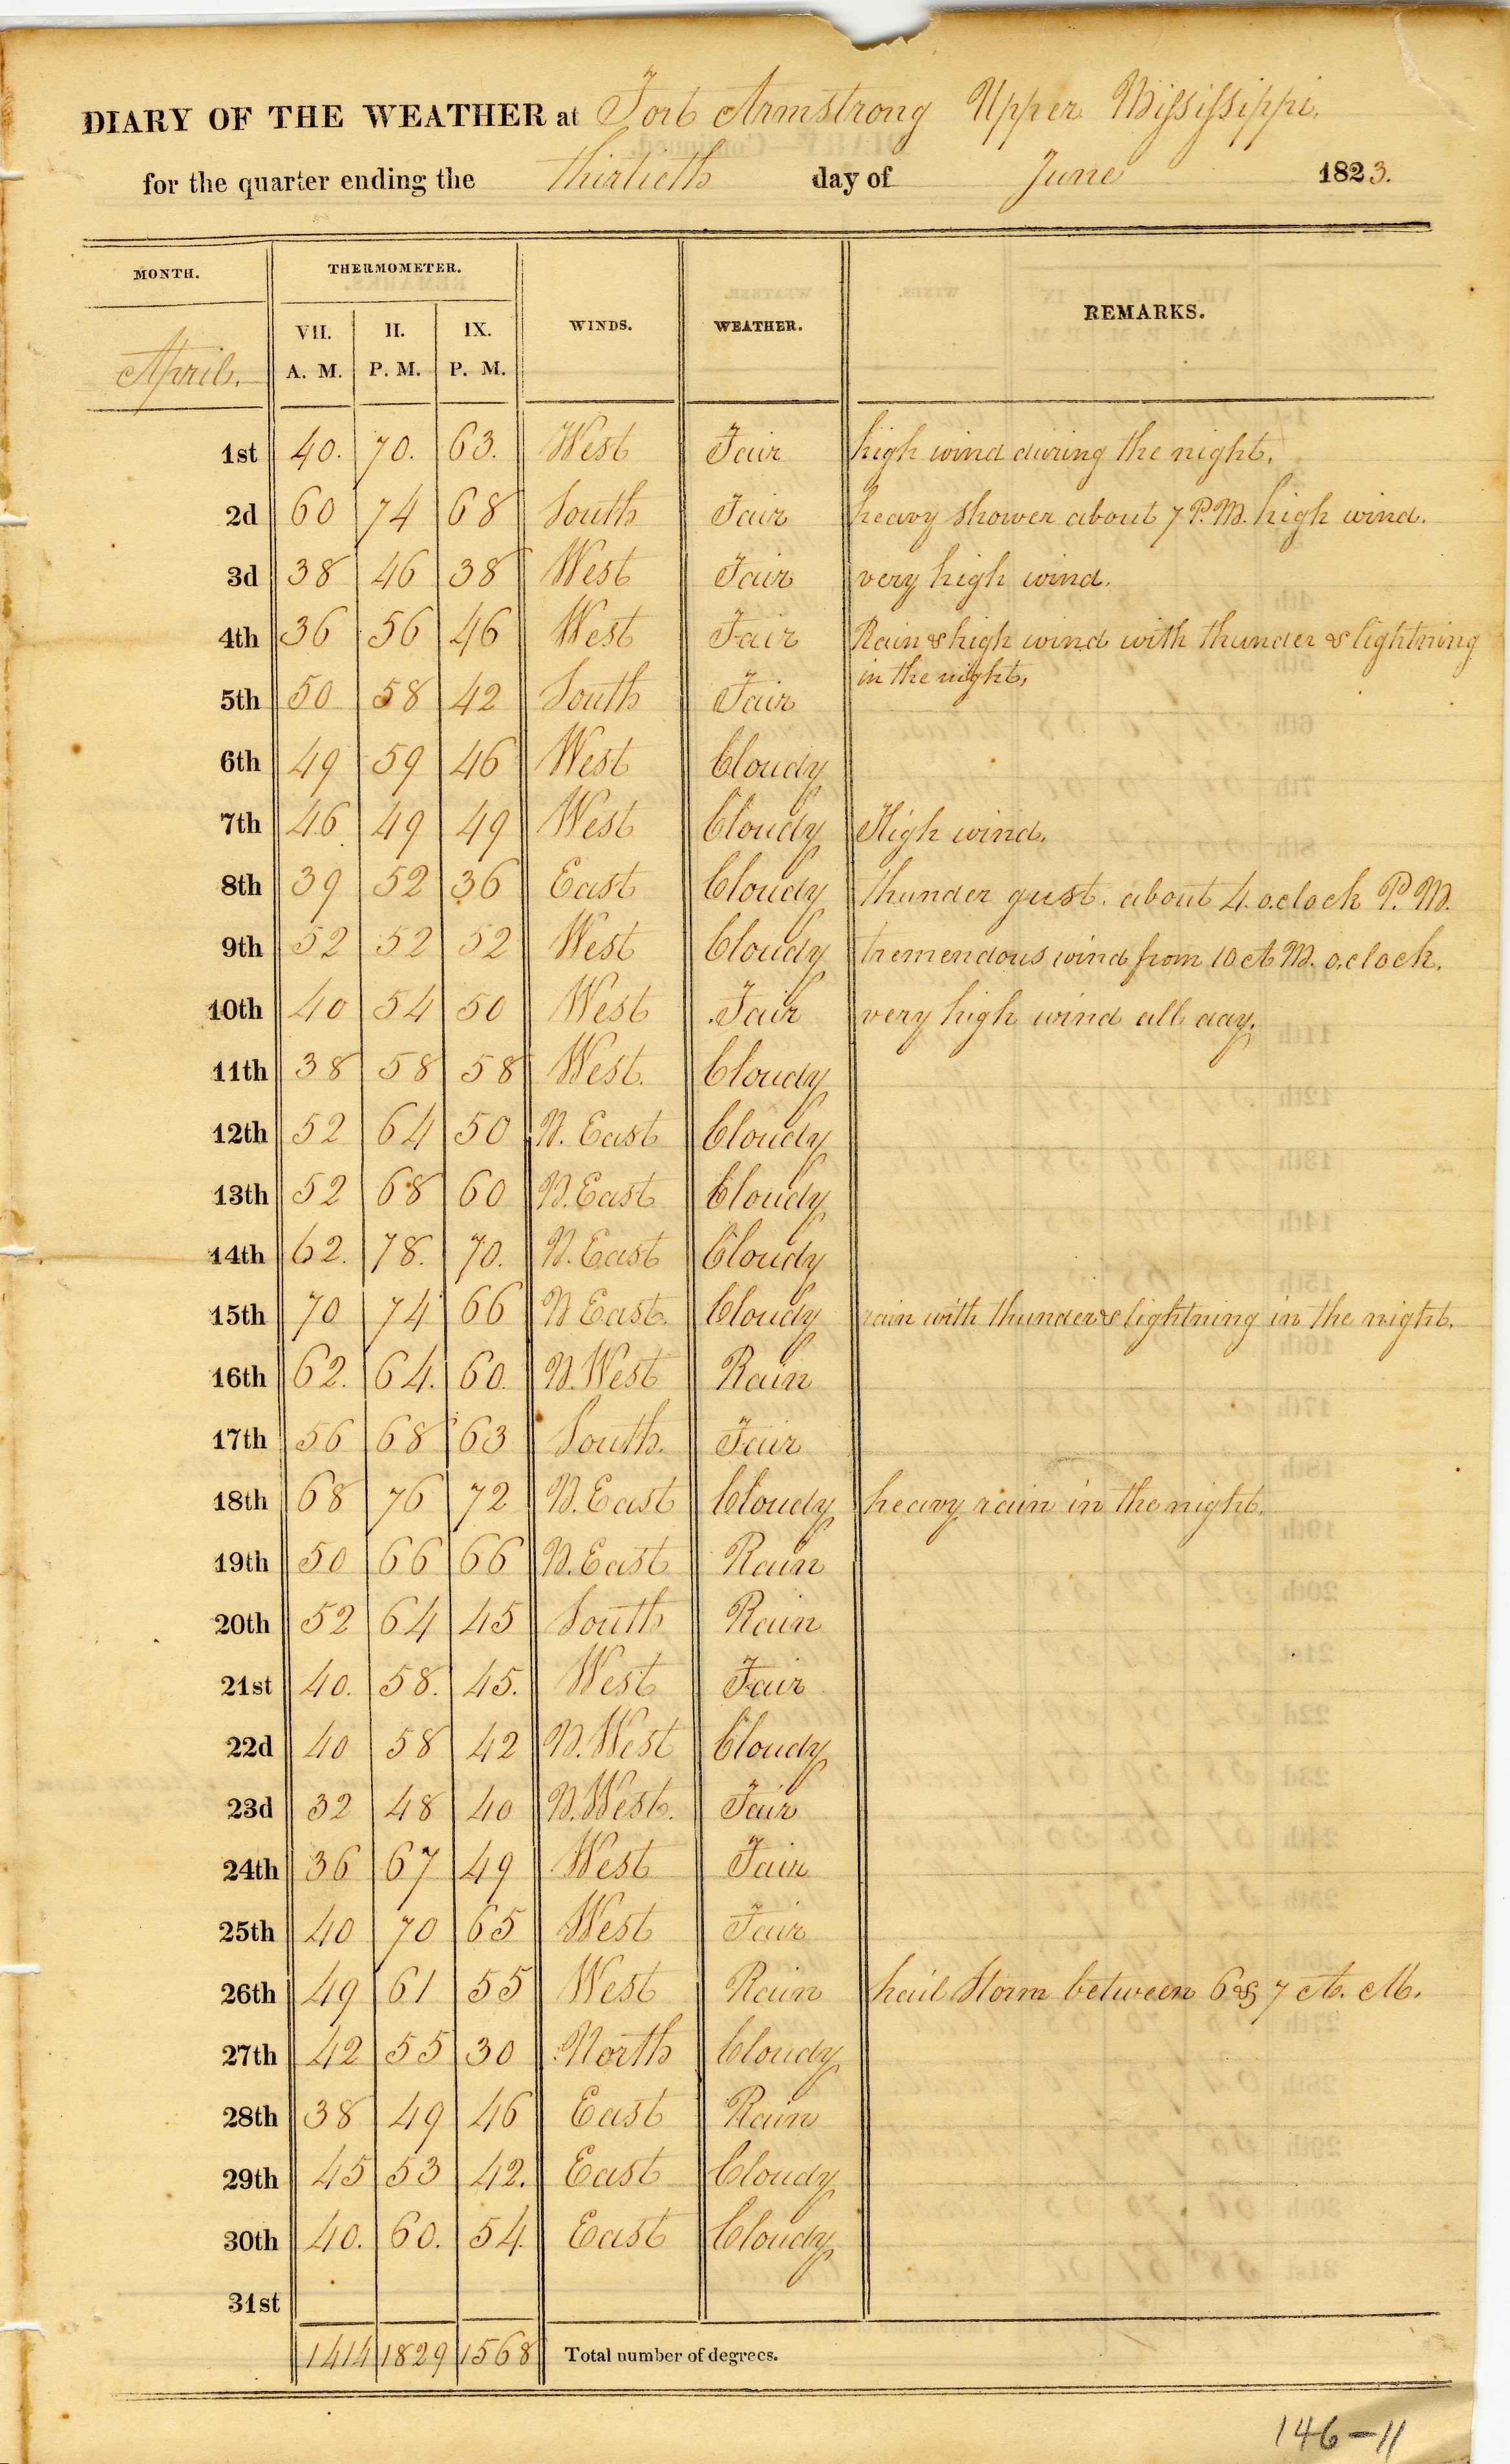 DIARY OF THE WEATHER at Fort Armstrong Upper Mississippi.
for the quarter ending the thirtieth day of June 1823.
MONTH. THERMOMETER. WINDS. WEATHER. REMARKS.
April. VII. A. M. II. P. M. IX. P. M.
1st 40. 70. 63. West Fair high wind during the night.
2d 60 74 68 South Fair heavy shower about 7 P.M. high wind.
3d 38 46 38 West Fair very high wind.
4th 36 56 46 West Fair Rain & high wind with thunder & lightning
in the night.
5th 50 58 42 South Fair
6th 49 59 46 West Cloudy
7th 46 49 49 West Cloudy High wind.
8th 39 52 36 East Cloudy thunder gust. about 4. o.clock P.M.
9th 52 52 52 West Cloudy tremendous wind from 10 A M. o.clock.
10th 40 54 50 West Fair very high wind all day.
11th 38 58 58 West. Cloudy
12th 52 64 50 N. East Cloudy
13th 52 68 60 N. East Cloudy
14th 62. 78. 70. N. East Cloudy
15th 70 74 66 N East. Cloudy rain with thunder & lightning in the night.
16th 62. 64. 60. N. West Rain
17th 56 68 63 South. Fair
18th 68 76 72 N. East Cloudy heavy rain in the night.
19th 50 66 66 N. East Rain
20th 52 64 45 South Rain
21st 40. 58. 45. West Fair
22d 40 58 42 N. West Cloudy
23d 32 48 40 N. West. Fair
24th 36 67 49 West Fair
25th 40 70 65 West Fair
26th 49 61 55 West Rain hail Storm between 6 & 7 A. M.
27th 42 55 30 North Cloudy
28th 38 49 46 East Rain
29th 45 53 42. East Cloudy
30th 40. 60. 54. East Cloudy
31st
1414 1829 1568 Total number of degrees.
146-11